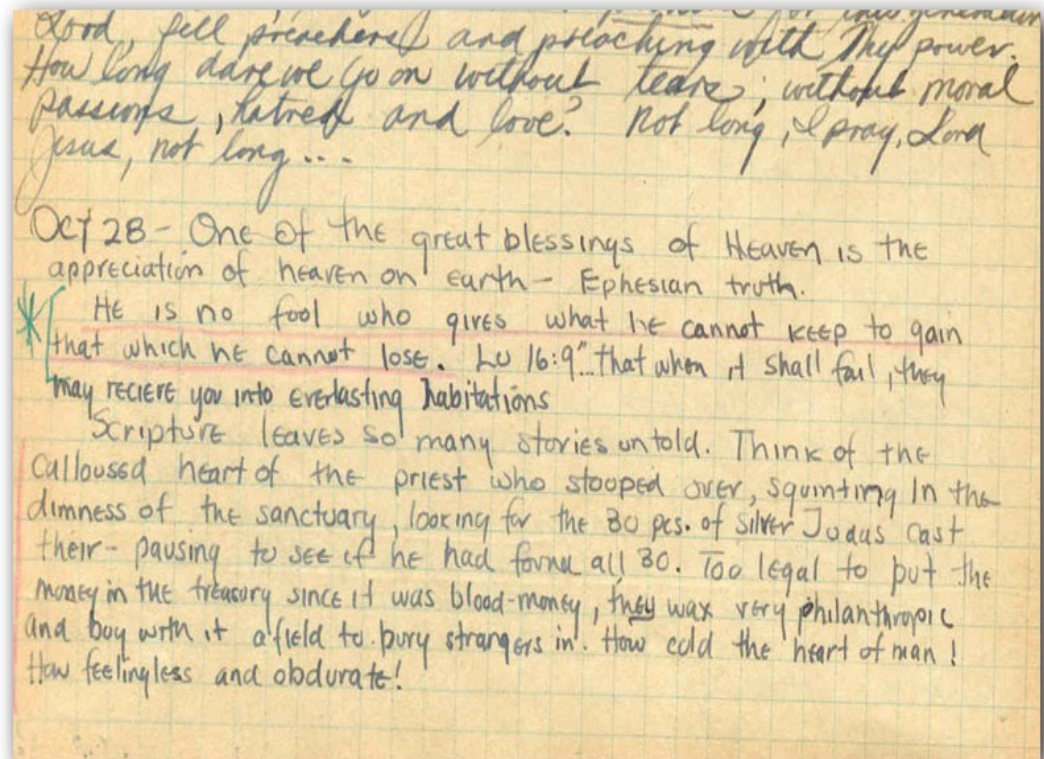 for this generation
Lord, fill preachers and preaching with Thy power.
How long dare we go on without tears, without moral
passions, hatred and love? Not long, I pray, Lord
Jesus, not long ...
Oct 28 - One of the great blessings of Heaven is the
appreciation of heaven on earth - Ephesian truth.
He is no fool who gives what he cannot keep to gain
that which he cannot lose. Lu 16:9 "..that when it shall fail, they
may recieve you into everlasting habitations
Scripture leaves so many stories untold. Think of the
calloused heart of the priest who stooped over, squinting in the
dimness of the sanctuary, looking for the 30 pcs. of silver Judas cast
their - pausing to see if he had found all 30. Too legal to put the
money in the treasury since it was blood-money, they wax very philanthropic
and buy with it a field to bury strangers in. How cold the heart of man!
How feelingless and obdurate!